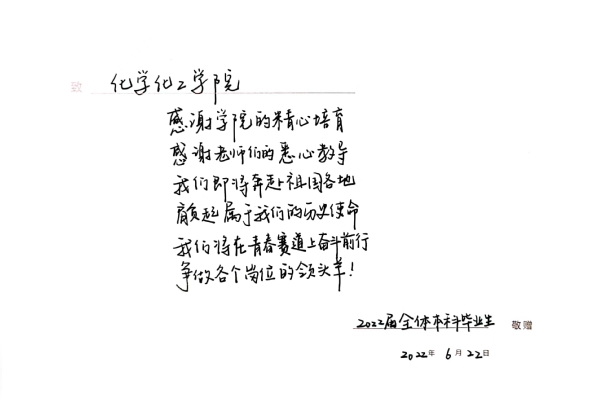 致 化学化工学院
感谢学院的精心培育
感谢老师们的悉心教导
我们即将奔赴祖国各地
肩起属于我们的历史使命
我们将在青春赛道上奋斗前行
争做各个岗位的领头羊！
2022届全体本科毕业生 敬赠
2022年 6月22日